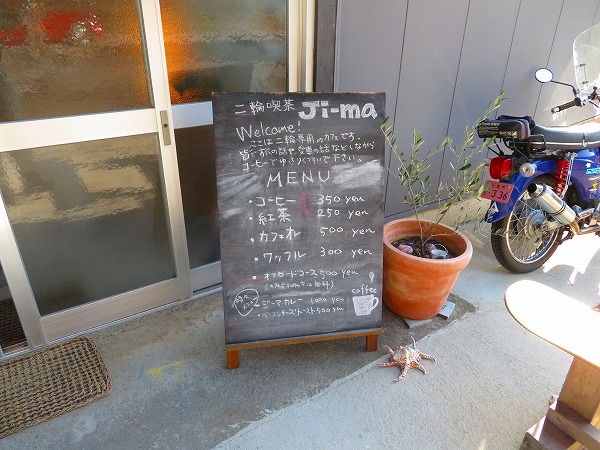 二輪喫茶 Ji-ma
Welcome!
ここは二輪専用のカフェです。
皆で旅の話や愛車の話などしながら
コーヒーでゆっくりくつろいで下さい。
MENU
・コーヒー 350 yen
・紅茶 250 yen
・カフェオレ 500 yen
・ワッフル 300 yen
・オフロードコース 500 yen
coffee
ジーマカレー 1000 yen
・ベーコンチーズトースト 500 yen
336